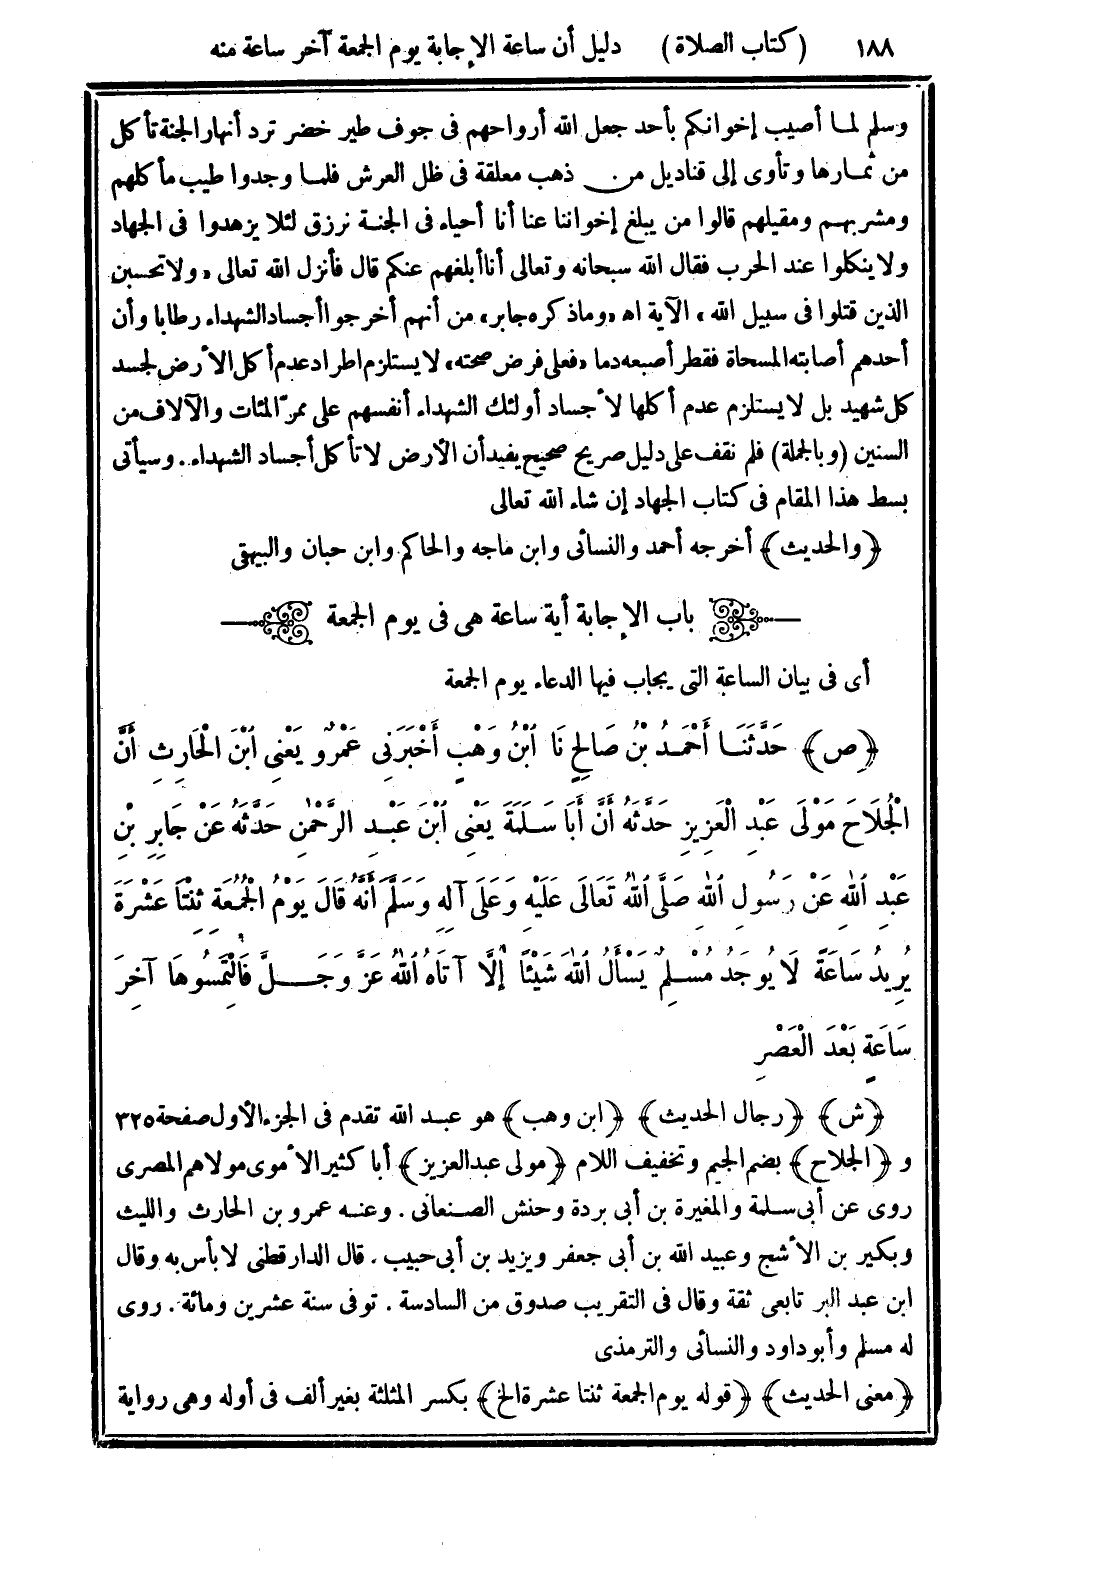 ١٨٨ (كتاب الصلاة) دليل أن ساعة الإجابة يوم الجمعة آخر ساعة منه
وسلم لما أصيب إخوانكم بأحد جعل الله أرواحهم فى جوف طير خضر ترد أنهار الجنة تأكل
من ثمارها وتأوى إلى قناديل من ذهب معلقة فى ظل العرش فلما وجدوا طيب مأكلهم
ومشربهم ومقيلهم قالوا من يبلغ إخواننا عنا أنا أحياء فى الجنة نرزق لئلا يزهدوا فى الجهاد
ولا ينكلوا عند الحرب فقال الله سبحانه وتعالى أنا أبلغهم عنكم قال فأنزل الله تعالى «ولا تحسبن
الذين قتلوا فى سبيل الله» الآية اه «وما ذكره جابر» من أنهم أخرجوا أجساد الشهداء رطابا وأن
أحدهم أصابته المسحاة فقطر أصبعه دما «فعلى فرض صحته» لا يستلزم اطراد عدم أكل الأرض لجسد
كل شهيد بل لا يستلزم عدم أكلها لأجساد أولئك الشهداء أنفسهم على ممرّ المئات والآلاف من
السنين (وبالجملة) فلم نقف على دليل صريح صحيح يفيد أن الأرض لا تأكل أجساد الشهداء. وسيأتى
بسط هذا المقام فى كتاب الجهاد إن شاء الله تعالى
﴿والحديث﴾ أخرجه أحمد والنسائى وابن ماجه والحاكم وابن حبان والبيهقى
باب الإجابة أية ساعة هى فى يوم الجمعة
أى فى بيان الساعة التى يجاب فيها الدعاء يوم الجمعة
﴿ص﴾ حَدَّثَنَا أَحْمَدُ بْنُ صَالِحٍ نَا ابْنُ وَهْبٍ أَخْبَرَنِى عَمْرٌو يَعْنِى ابْنَ الْحَارِثِ أَنَّ
الْجُلَاحَ مَوْلَى عَبْدِ الْعَزِيزِ حَدَّثَهُ أَنَّ أَبَا سَلَمَةَ يَعْنِى ابْنَ عَبْدِ الرَّحْمٰنِ حَدَّثَهُ عَنْ جَابِرِ بْنِ
عَبْدِ اللهِ عَنْ رَسُولِ اللهِ صَلَّى اللهُ تَعَالَى عَلَيْهِ وَعَلَى آلِهِ وَسَلَّمَ أَنَّهُ قَالَ يَوْمُ الْجُمُعَةِ ثِنْتَا عَشْرَةَ
يُرِيدُ سَاعَةً لَا يُوجَدُ مُسْلِمٌ يَسْأَلُ اللهَ شَيْئًا إِلَّا آتَاهُ اللهُ عَزَّ وَجَلَّ فَالْتَمِسُوهَا آخِرَ
سَاعَةٍ بَعْدَ الْعَصْرِ
﴿ش﴾ ﴿رجال الحديث﴾ ﴿ابن وهب﴾ هو عبد الله تقدم فى الجزء الأول صفحة ٣٢٥
و ﴿الجلاح﴾ بضم الجيم وتخفيف اللام ﴿مولى عبد العزيز﴾ أبا كثير الأموى مولاهم المصرى
روى عن أبى سلمة والمغيرة بن أبى بردة وحنش الصنعانى. وعنه عمرو بن الحارث والليث
وبكير بن الأشج وعبيد الله بن أبى جعفر ويزيد بن أبى حبيب. قال الدارقطنى لا بأس به وقال
ابن عبد البر تابعى ثقة وقال فى التقريب صدوق من السادسة. توفى سنة عشرين ومائة. روى
له مسلم وأبو داود والنسائى والترمذى
﴿معنى الحديث﴾ ﴿قوله يوم الجمعة ثنتا عشرة الخ﴾ بكسر المثلثة بغير ألف فى أوله وهى رواية